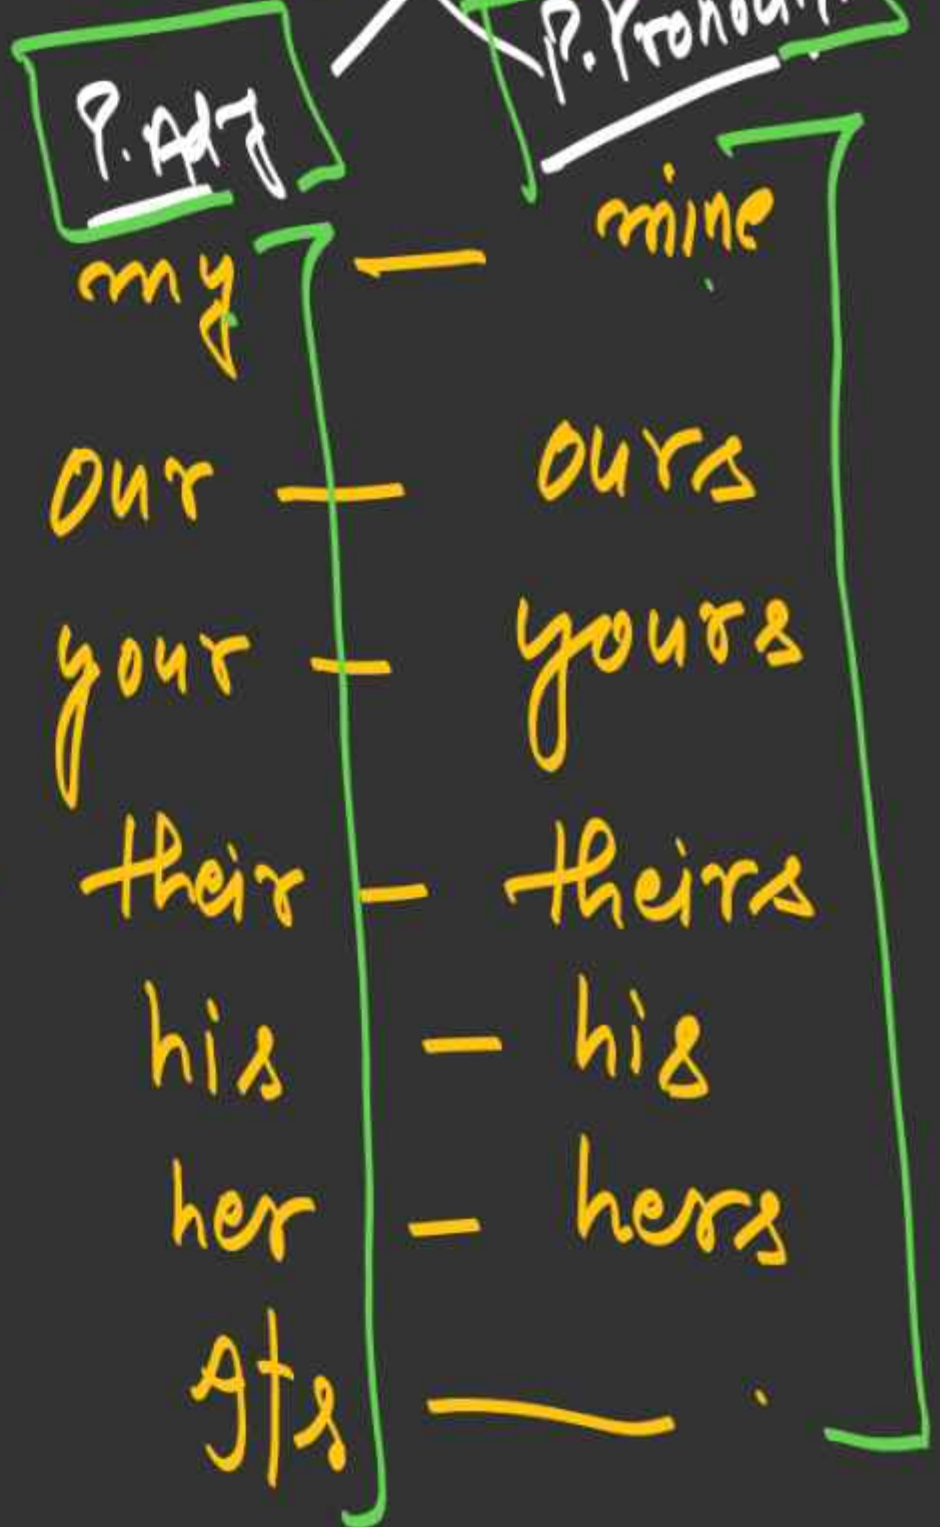 P. Adj P. Pronoun
my — mine
our — ours
your — yours
their — theirs
his — his
her — hers
Its —